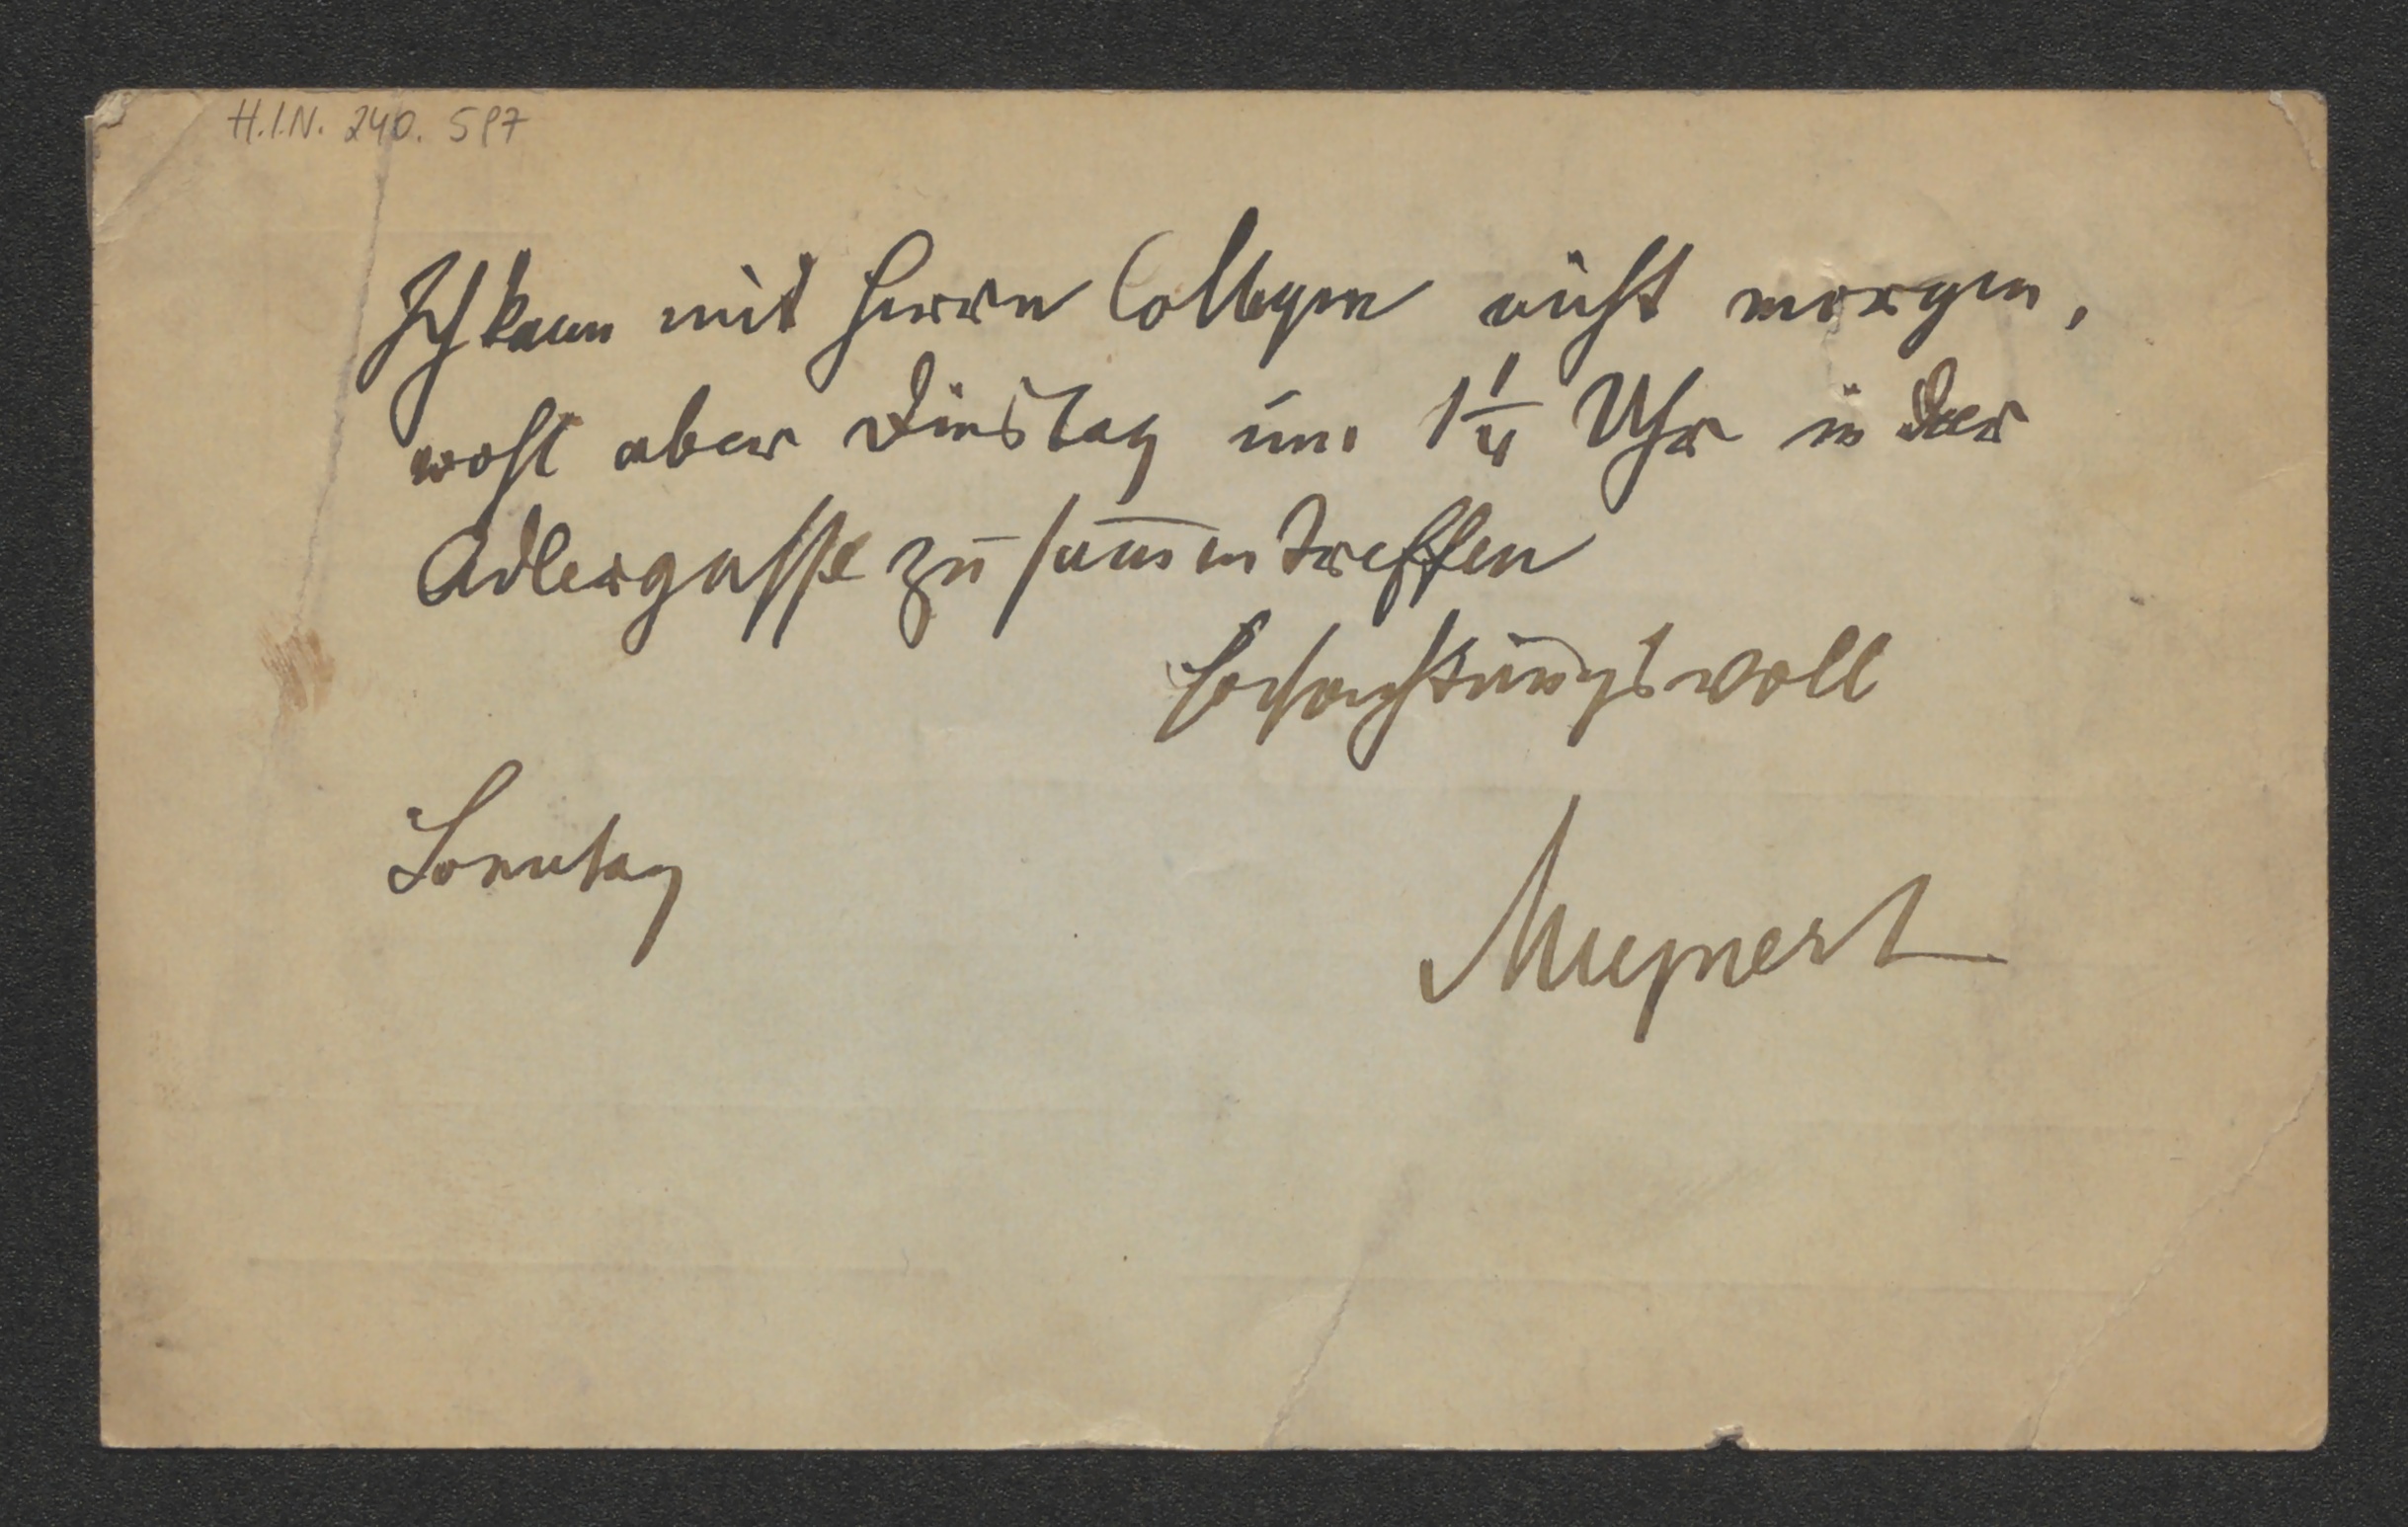 H.I.N. 240.597
Ich kann mit Herrn Collegen nicht morgen,
wohl aber Dinstag um 1 1/4 Uhr in der
Adlergasse zusam̅entreffen
Hochachtungsvoll
Sonntag
Meynert